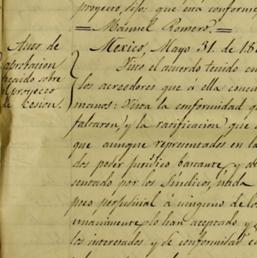 proyecto, dijo: que está conforme
Manuel Romero.
Auto de
aprobacion
recaido sobre
el proyecto
de cesion.
Mexico, Mayo 31 de 18
Visto el acuerdo tenido en
los acreedores que á ella concu
Vista la conformidad q
faltaron, y la ratificacion que
que aunque representados en la
dos poder jurídico bastante, y
sentado por los Síndicos, nada
pues perjudicial á ninguno de los
unanimemente lo han aceptado, y
los interesados y de conformidad c